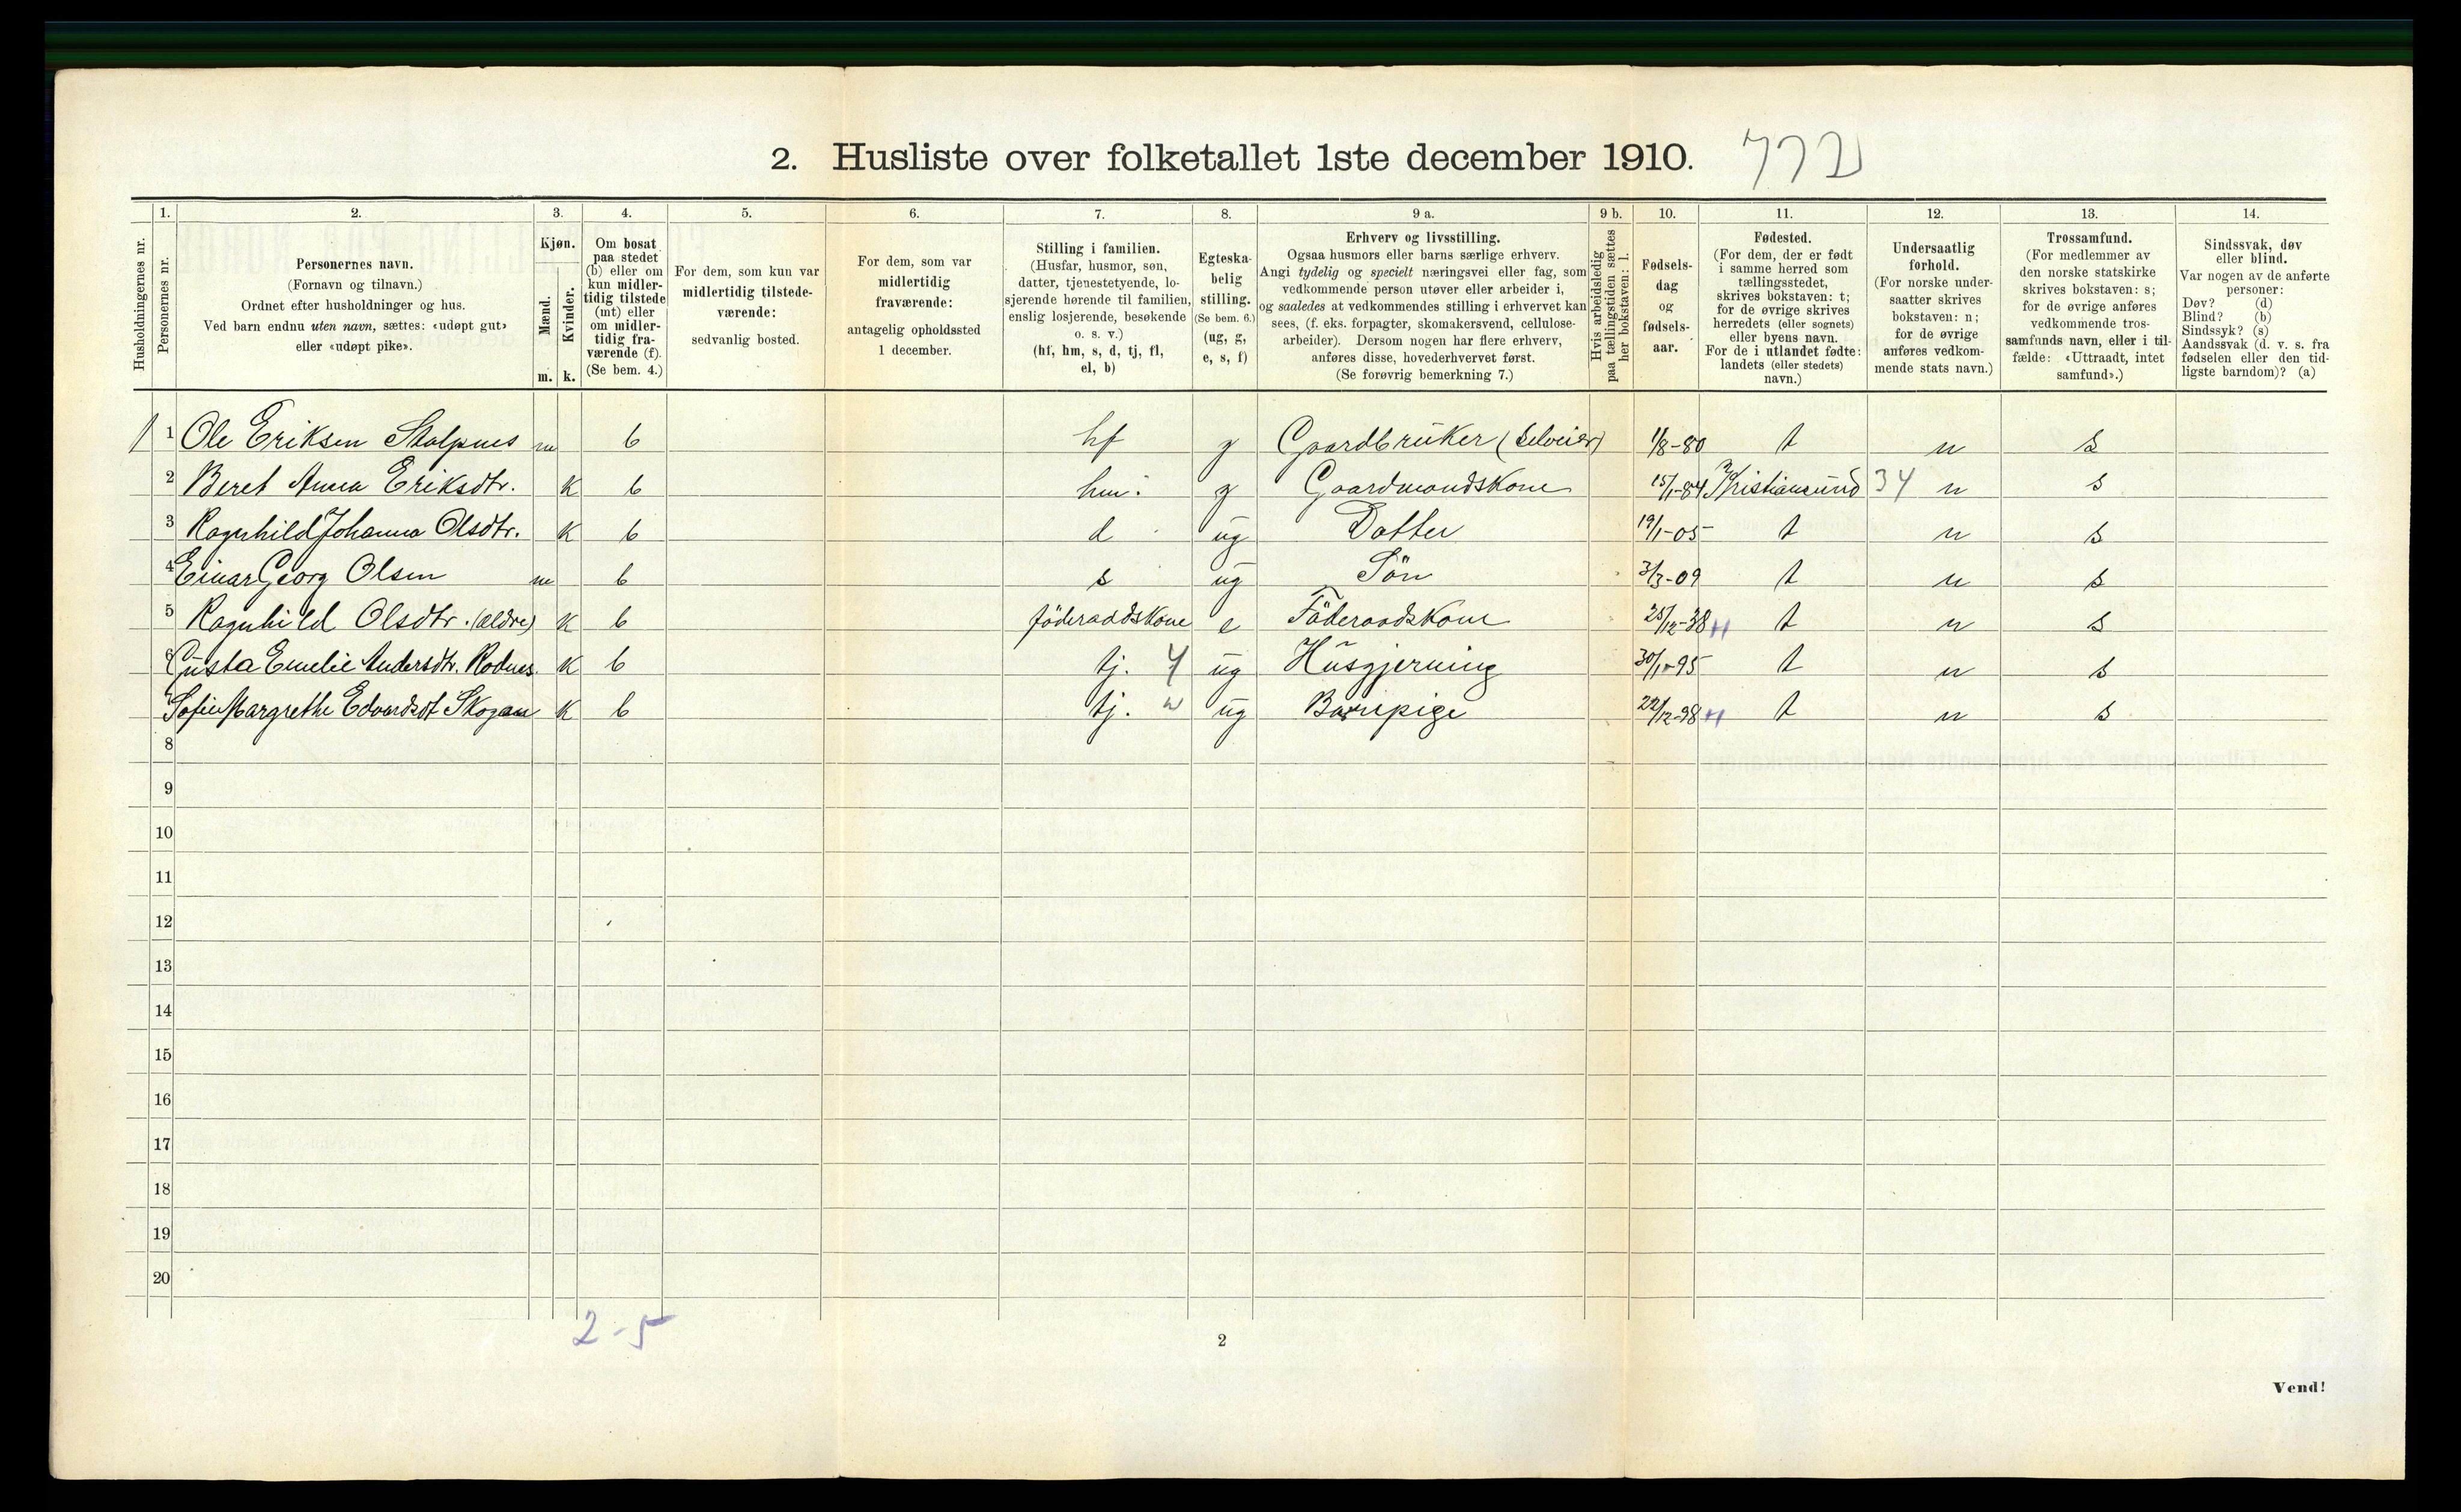 2. Husliste over folketallet 1ste december 1910. 772
1. 2. 3. 4. 5. 6. 7. 8. 9 a. 9 b. 10. 11. 12. 13. 14.
Husholdningernes nr.
Personernes nr.
Personernes navn.
(Fornavn og tilnavn.)
Ordnet efter husholdninger og hus.
Ved barn endnu uten navn, sættes: «udøpt gut»
eller «udøpt pike».
Kjøn.
Mænd.
Kvinder.
m. k.
Om bosat
paa stedet
(b) eller om
kun midler-
tidig tilstede
(mt) eller
om midler-
tidig fra-
værende (f).
(Se bem. 4.)
For dem, som kun var
midlertidig tilstede-
værende:
sedvanlig bosted.
For dem, som var
midlertidig
fraværende:
antagelig opholdssted
1 december.
Stilling i familien.
(Husfar, husmor, søn,
datter, tjenestetyende, lo-
sjerende hørende til familien,
enslig losjerende, besøkende
o. s. v.)
(hf, hm, s, d, tj, fl,
el, b)
Egteska-
belig
stilling.
(Se bem. 6.)
(ug, g,
e, s, f)
Erhverv og livsstilling.
Ogsaa husmors eller barns særlige erhverv.
Angi tydelig og specielt næringsvei eller fag, som
vedkommende person utøver eller arbeider i,
og saaledes at vedkommendes stilling i erhvervet kan
sees, (f. eks. forpagter, skomakersvend, cellulose-
arbeider). Dersom nogen har flere erhverv,
anføres disse, hovederhvervet først.
(Se forøvrig bemerkning 7.)
Hvis arbeidsledig
paa tællingstiden sættes
her bokstaven: l.
Fødsels-
dag
og
fødsels-
aar.
Fødested.
(For dem, der er født
i samme herred som
tællingsstedet,
skrives bokstaven: t;
for de øvrige skrives
herredets (eller sognets)
eller byens navn.
For de i utlandet fødte:
landets (eller stedets)
navn.)
Undersaatlig
forhold.
(For norske under-
saatter skrives
bokstaven: n;
for de øvrige
anføres vedkom-
mende stats navn.)
Trossamfund.
(For medlemmer av
den norske statskirke
skrives bokstaven: s;
for de øvrige anføres
vedkommende tros-
samfunds navn, eller i til-
fælde: «Uttraadt, intet
samfund».)
Sindssvak, døv
eller blind.
Var nogen av de anførte
personer:
Døv? (d)
Blind? (b)
Sindssyk? (s)
Aandssvak (d. v. s. fra
fødselen eller den tid-
ligste barndom)? (a)
1 1 Ole Eriksen Skalpnes m b hf g Gaardbruker (selveier) 1/8-80 t n s
2 Beret Anna Eriksdtr. K b hm. g Gaardmandskone 15/1-84 Kristiansund 34 n s
3 Ragnhild Johanna Olsdtr. K b d ug Datter 19/1-05 t n s
4 Einar Georg Olsen m b s ug Sön 3/3-09 t n s
5 Ragnhild Olsdtr. (ældre) K b föderaadskone e Föderaadskone 25/12-38 H t n s
6 Gusta Emelie Andersdtr. Rodnes K b tj. 4 ug Husgjerning 30/1-95 t n s
7 Sofie Margrethe Edvardsdt Skogan K b tj. ug Barnepige 22/12-98 H t n s
8
9
10
11
12
13
14
15
16
17
18
19
20
2-5
2
Vend!